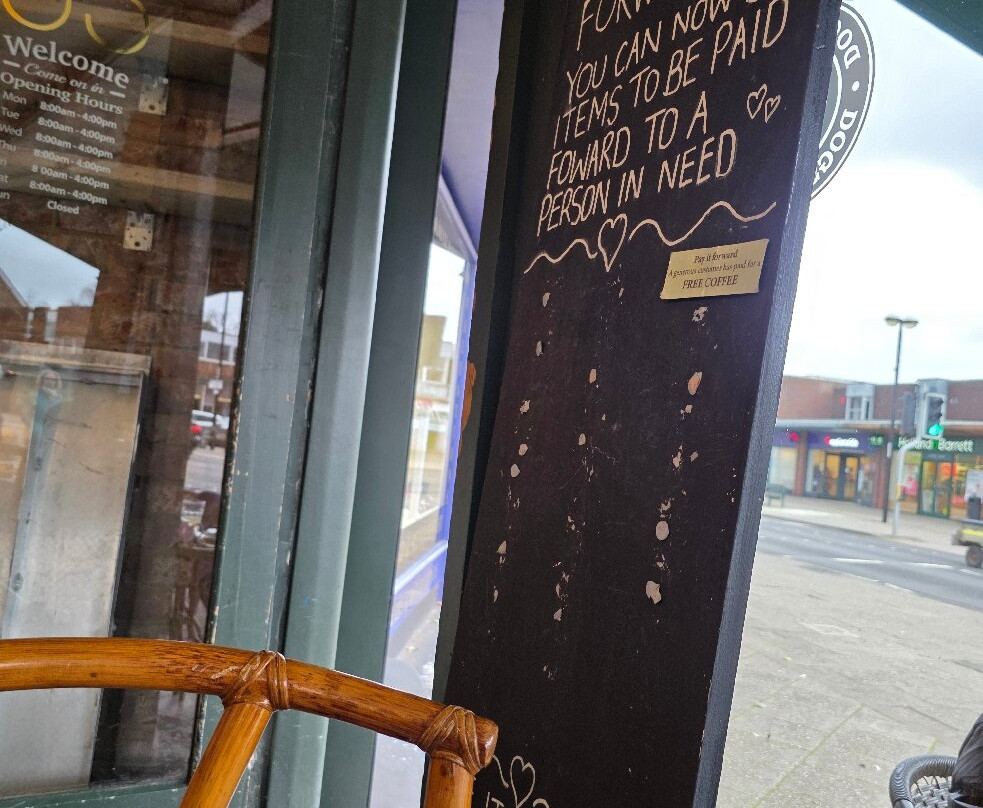 Welcome
Come on in
Opening Hours
Mon 8:00am - 4:00pm
Tue 8:00am - 4:00pm
Wed 8:00am - 4:00pm
Thu 8:00am - 4:00pm
8:00am - 4:00pm
8:00am - 4:00pm
Closed
YOU CAN NOW
ITEMS TO BE PAID
FOWARD TO A
PERSON IN NEED
Pay it forward
A generous customer has paid for a
FREE COFFEE
Holland Barrett